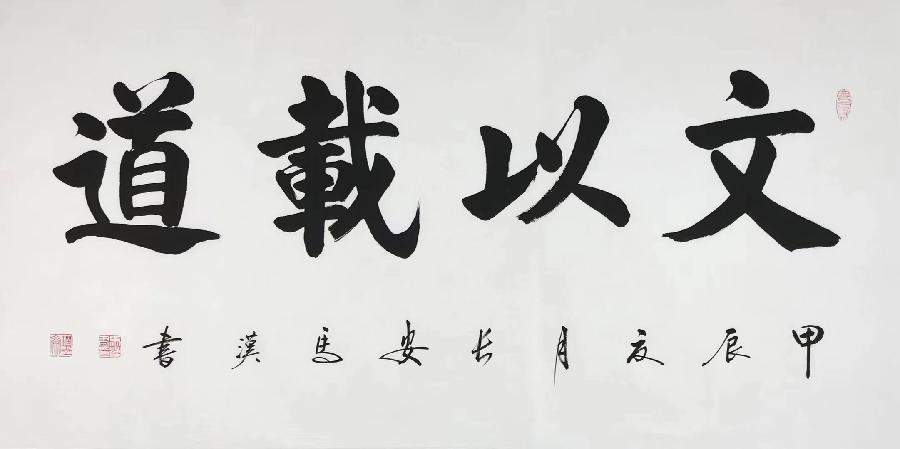 文以載道
甲辰夏月长安馬漢書